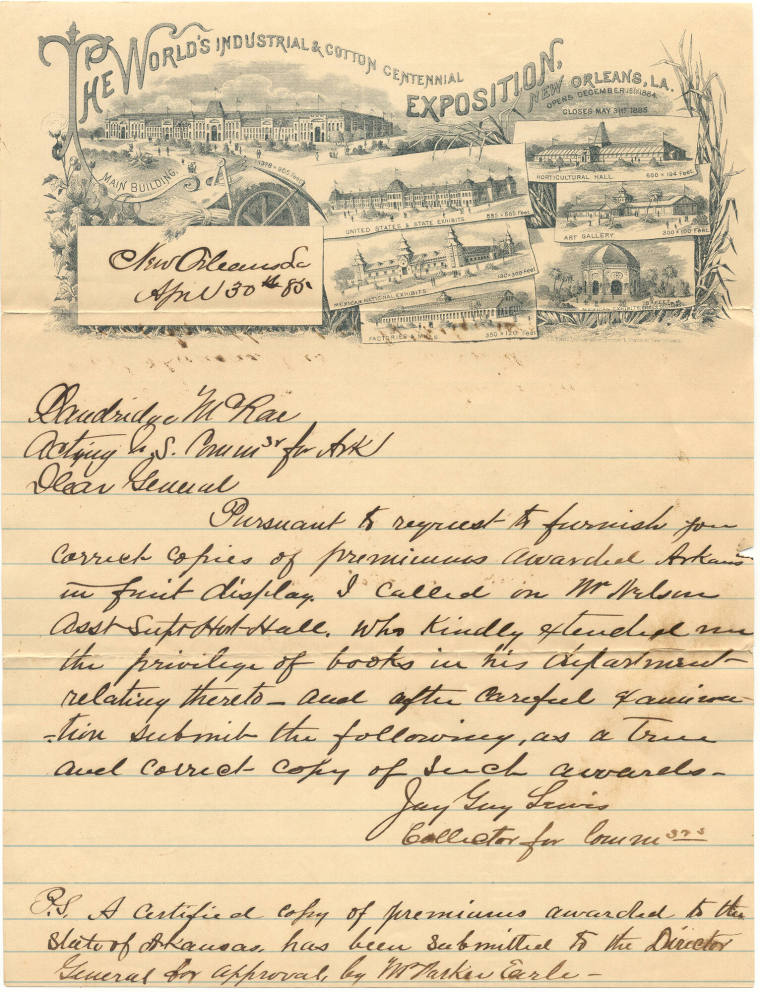 The World's Industrial & Cotton Centennial
Exposition,
New Orleans, LA.
Opens December 16th 1884
Closes May 31st 1885
Main Building.
1378 × 905 feet
United States & State Exhibits
885 × 565 Feet
Horticultural Hall
600 × 194 Feet
Art Gallery
300 × 100 Feet
Mexican National Exhibits
190 × 300 Feet
Factories & Mills
350 × 120 Feet
New Orleans La
April 30th 85
Dandridge McRae
Acting U.S. Commsr for Ark
Dear General
Pursuant to request to furnish you
correct copies of premiums awarded Arkans
in fruit display. I called on Mr Nelson
Asst Supt Hort Hall, who kindly extended me
the privilege of books in his department
relating thereto – and after careful examina-
-tion submit the following, as a true
and correct copy of such awards –
Jay Guy Lewis
Collector for Commsrs
P.S. A certified copy of premiums awarded to the
State of Arkansas, has been submitted to the Director
General for approval, by Mr Parker Earle –